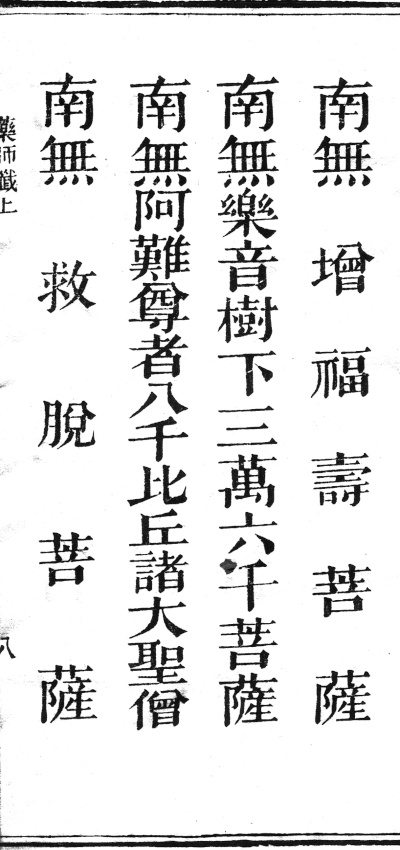 南無增福壽菩薩
南無樂音樹下三萬六千菩薩
南無阿難尊者八千比丘諸大聖僧
南無救脫菩薩
藥師懺上
八